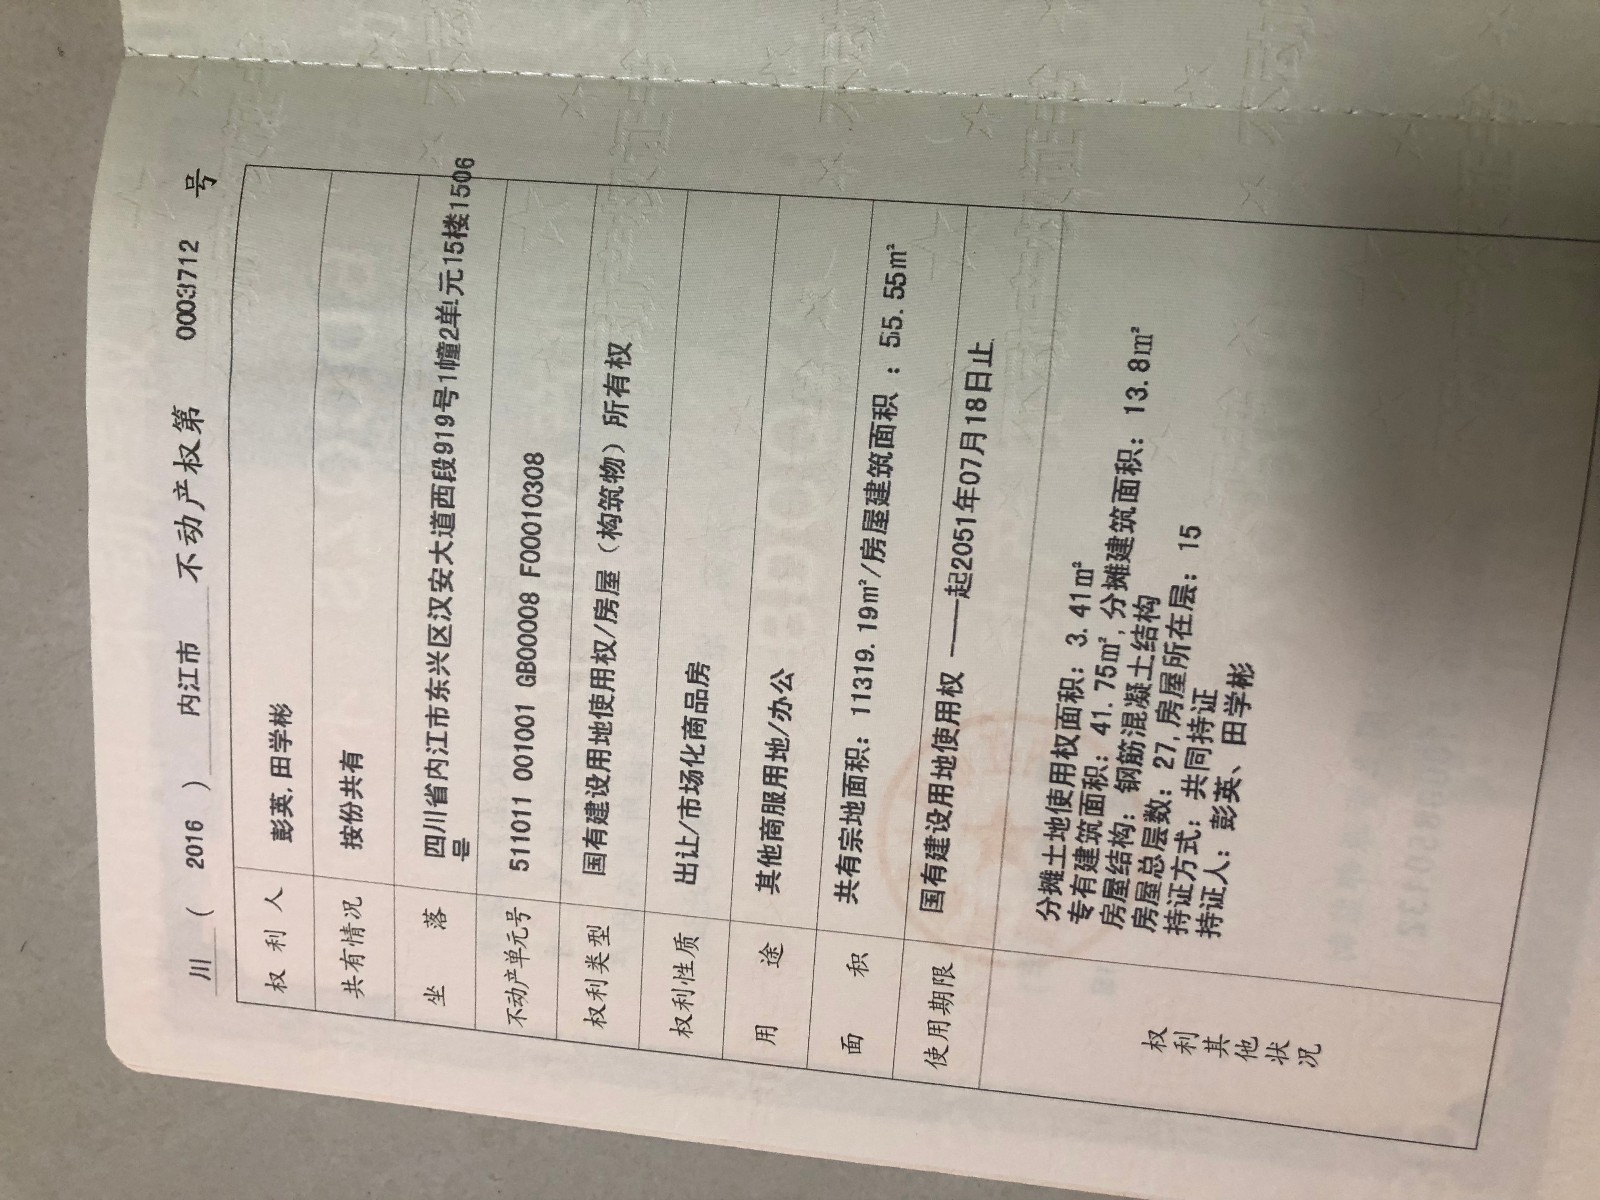 川（ 2016 ） 内江市 不动产权第 0003712 号
权利人 彭英,田学彬
共有情况 按份共有
坐落 四川省内江市东兴区汉安大道西段919号1幢2单元15楼1506
号
不动产单元号 511011 001001 GB00008 F00010308
权利类型 国有建设用地使用权/房屋（构筑物）所有权
权利性质 出让/市场化商品房
用途 其他商服用地/办公
面积 共有宗地面积：11319.19㎡/房屋建筑面积：55.55㎡
使用期限 国有建设用地使用权 ——起2051年07月18日止
权利其他状况
分摊土地使用权面积：3.41㎡
专有建筑面积：41.75㎡,分摊建筑面积：13.8㎡
房屋结构：钢筋混凝土结构
房屋总层数：27,房屋所在层：15
持证方式：共同持证
持证人：彭英、田学彬